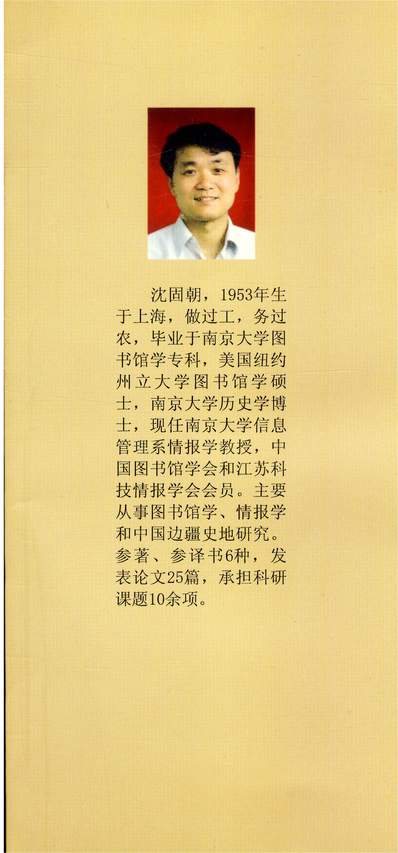 沈固朝，1953年生
于上海，做过工，务过
农，毕业于南京大学图
书馆学专科，美国纽约
州立大学图书馆学硕
士，南京大学历史学博
士，现任南京大学信息
管理系情报学教授，中
国图书馆学会和江苏科
技情报学会会员。主要
从事图书馆学、情报学
和中国边疆史地研究。
参著、参译书6种，发
表论文25篇，承担科研
课题10余项。